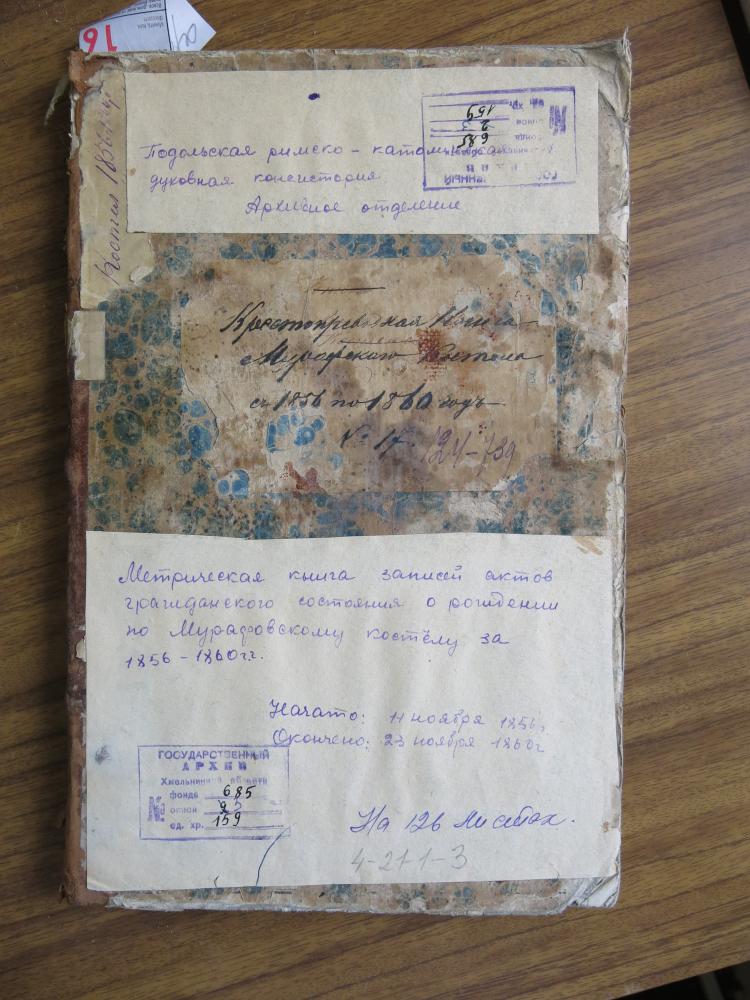 16
Костел 1856
Подольская римско-католическая
духовная консистория
Архивное отделение
АРХИВ
фонда 685
описи
ед. хр. 159
Книга
Мурафского Костела
съ 1856 по 1860 годъ
№ 17. 124-739
Метрическая книга записей актов
гражданского состояния о рождении
по Мурафовскому костёлу за
1856-1860гг.
Начато: 11 ноября 1856г
Окончено: 23 ноября 1860г
ГОСУДАРСТВЕННЫЙ
АРХИВ
Хмельницкой области
№ фонда 685
описи
ед. хр. 159
На 126 листах.
4-211-3